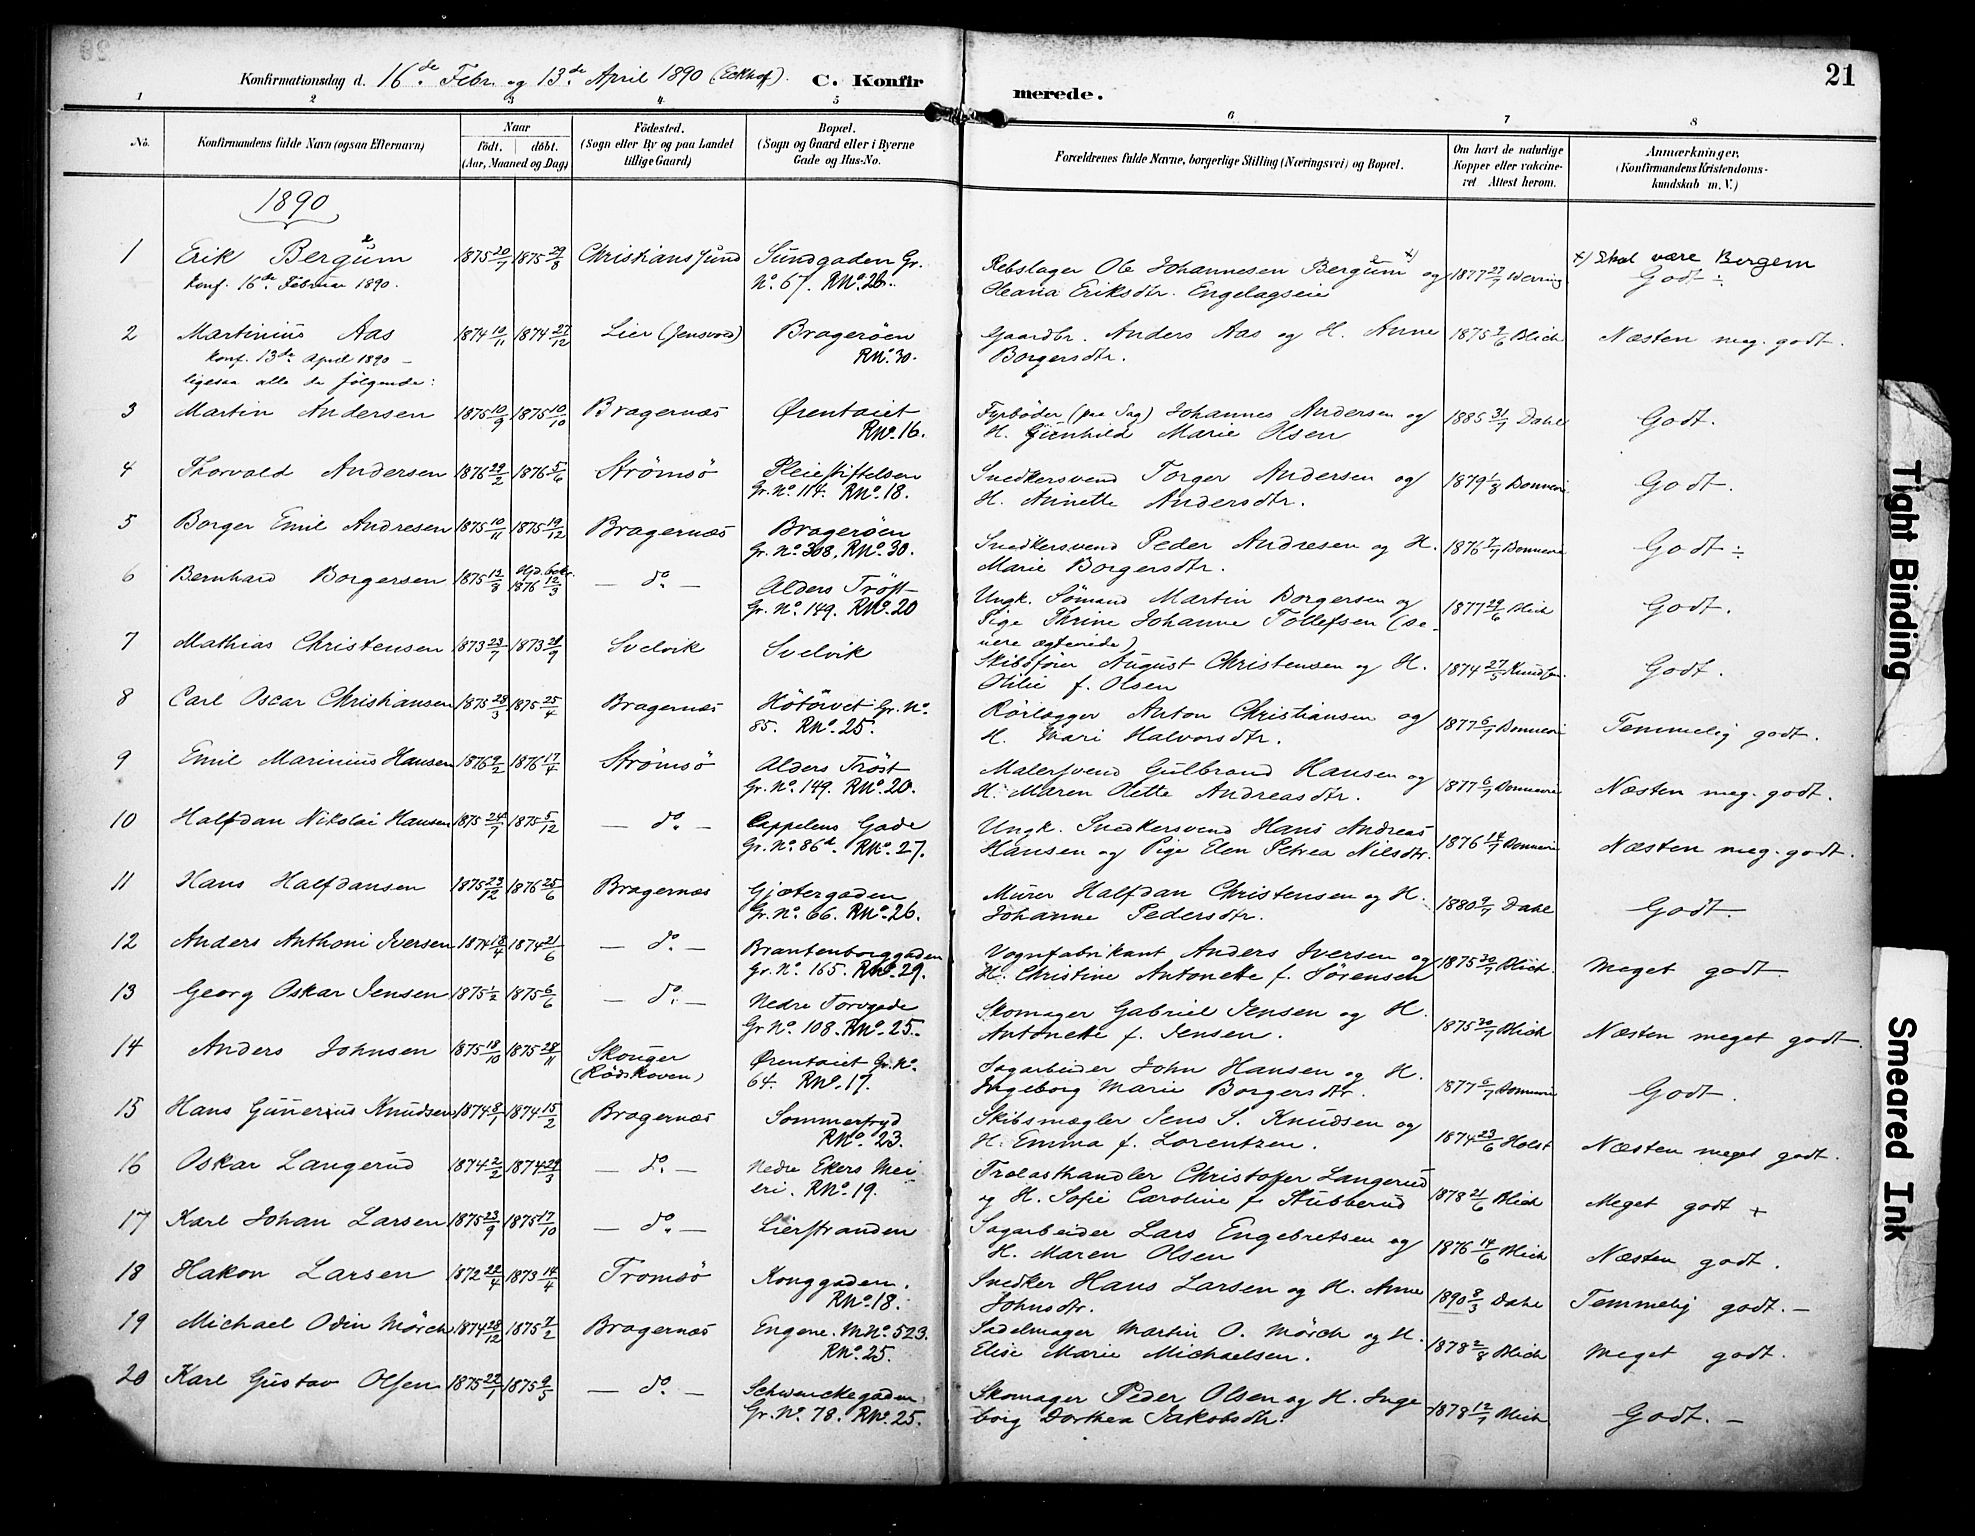 Konfirmationsdag d. 16de Febr. og 13de April 1890 (Eckhof). C. Konfirmerede. 21
1 2 3 4 5 6 7 8
No. Konfirmandens fulde Navn (ogsaa Efternavn) Naar födt. döbt. (Aar, Maaned og Dag) Födested. (Sogn eller By og paa Landet tillige Gaard) Bopæl. (Sogn og Gaard eller i Byerne Gade og Hus-No. Forældrenes fulde Navne, borgerlige Stilling (Næringsvei) og Bopæl. Om havt de naturlige Kopper eller vakcineret Attest herom. Anmærkninger, (Konfirmandens Kristendomskundskab m. V.)
1890
1 Erik Bergum 1875 20/7 1875 29/8 Christianssund Sundgaden Gr. No. 67. RNo. 26. Rebslager Ole Johannesen Bergum x) og Oleana Eriksdtr. Engelagseie 1877 27/7 x) Skal være Bergem Godt ÷
e e
Konf. 16de Februar 1890.
2 Martinius Aas 1874 10/11 1874 27/12 Lier (Jensvold) Bragerøen RNo. 30. Gaardbr. Anders Aas og H. Anne Borgersdtr. 1875 9/6 Blich Næsten meg. godt.
Konf. 13de April 1890 –
ligesaa alle de følgende:
3 Martin Andersen 1875 10/9 1875 10/10 Bragernæs Ørentoiet RNo. 16. Fyrbøder (paa Sag) Johannes Andersen og H. Gunhild Marie Olsen 1885 31/7 Dahl Godt.
4 Thorvald Andersen 1876 29/2 1876 5/6 Strømsö Pleiestiftelsen Gr. No. 114. RNo. 18. Snedkersvend Torger Andersen og H. Annette Andersdtr. 1879 1/8 Godt.
5 Borger Emil Andresen 1875 10/11 1875 19/12 Bragernæs Bragerøen Gr. No. 308, RNo. 30. Snedkersvend Peder Andresen og H. Marie Borgersdtr. 1876 7/7 Godt ÷
6 Bernhard Borgersen 1875 12/8 1876 12/3 – do. – Alders Trøst Gr. No. 149. RNo. 20 Ungk. Sömand Martin Borgersen og Pige Thrine Johanne Tollefsen (senere ægteviede) 1877 29/6 Blich Godt.
7 Mathias Christensen 1873 23/7 1873 28/9 Svelvik Svelvik Skibsförer August Christensen og H. Otilie f. Olsen 1874 27/5 Godt.
8 Carl Oscar Christiansen 1875 28/3 1875 25/4 Bragernæs Hötorvet Gr. No. 85. RNo. 25. Rörlægger Anton Christiansen og H. Mari Halvorsdtr. 1877 6/7 Temmelig godt.
9 Emil Marinius Hansen 1876 9/2 1876 17/4 Strømsö Alders Trøst Gr. No. 149. RNo. 20. Malersvend Gulbrand Hansen og H. Maren Olette Andreasdtr. 1877 6/7 Næsten meg. godt.
10 Halfdan Nikolai Hansen 1875 24/7 1875 5/12 – do. – Cappelens Gade Gr. No. 86d. RNo. 27. Ungk. Snedkersvend Hans Andreas Hansen og Pige Elen Petrea Nilsdtr. 1876 14/7 Næsten meg. godt.
11 Hans Halfdansen 1875 23/12 1876 25/6 Bragernæs Gjætergaden Gr. No. 66. RNo. 26. Murer Halfdan Christensen og H. Johanne Pedersdtr. 1880 9/7 Dahl Godt.
12 Anders Anthoni Iversen 1874 18/4 1874 21/6 – do. – Brantenborggaden Gr. No. 165. RNo. 29. Vognfabrikant Anders Iversen og H. Christine Antonette f. Sørensen 1875 30/7 Blich. Meget godt.
13 Georg Oskar Jensen 1875 1/2 1875 6/6 – do. – Nedre Torvgade Gr No. 108. RNo. 25. Skomager Gabriel Jensen og H. Antonette f. Jensen. 1875 30/7 Blich Næsten meget godt.
14 Anders Johnsen 1875 18/10 1875 28/11 Skouger (Rödskoven) Ørentoiet Gr. No. 64. RNo. 17. Sagarbeider John Hansen og H. Ingeborg Marie Borgersdtr. 1877 6/7 Godt.
15 Hans Gunerius Knudsen 1874 8/1 1874 15/2 Bragernæs Sommerfryd RNo. 23. Skibsmægler Jens S. Knudsen og H. Emma f. Lorentzen. 1874 23/6 Holst Næsten meget godt.
16 Oskar Langerud 1874 2/2 1874 29/3 – do. – Nedre Ekers Meieri. RNo. 19. Trælasthandler Christofer Langerud og H. Sofie Caroline f. Stubberud 1878 21/6 Blich Meget godt +
17 Karl Johan Larsen 1875 23/9 1875 17/10 – do. – Lierstranden Sagarbeider Lars Engebretsen og H. Maren Olsen 1876 14/6 Blich Næsten godt.
18 Hakon Larsen 1872 22/4 1873 14/4 Tromsö Konggaden. RNo. 18. Snedker Hans Larsen og H. Anne Johnsdtr. 1890 8/3 Dahl Temmelig godt. –
19 Michael Odin Mörch 1874 28/12 1875 7/2 Bragernæs Engene. MNo. 523. RNo. 25. Sadelmager Martin O. Mörch og H. Elise Marie Michaelsen. 1878 2/8 Blich Meget godt.
20 Karl Gustav Olsen 1875 22/1 1875 9/5 – do. – Schwenckegaden Gr. No. 78. RNo. 25. Skomager Peder Olsen og H. Ingeborg Dorthea Jakobsdtr. 1878 12/7 Blich Godt. –
Tight Binding
Smeared Ink